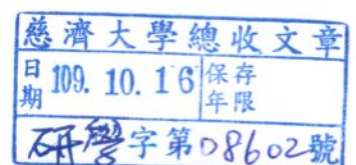 慈濟大學總收文章
日期 109. 10. 16 保存年限
研學字第08602號